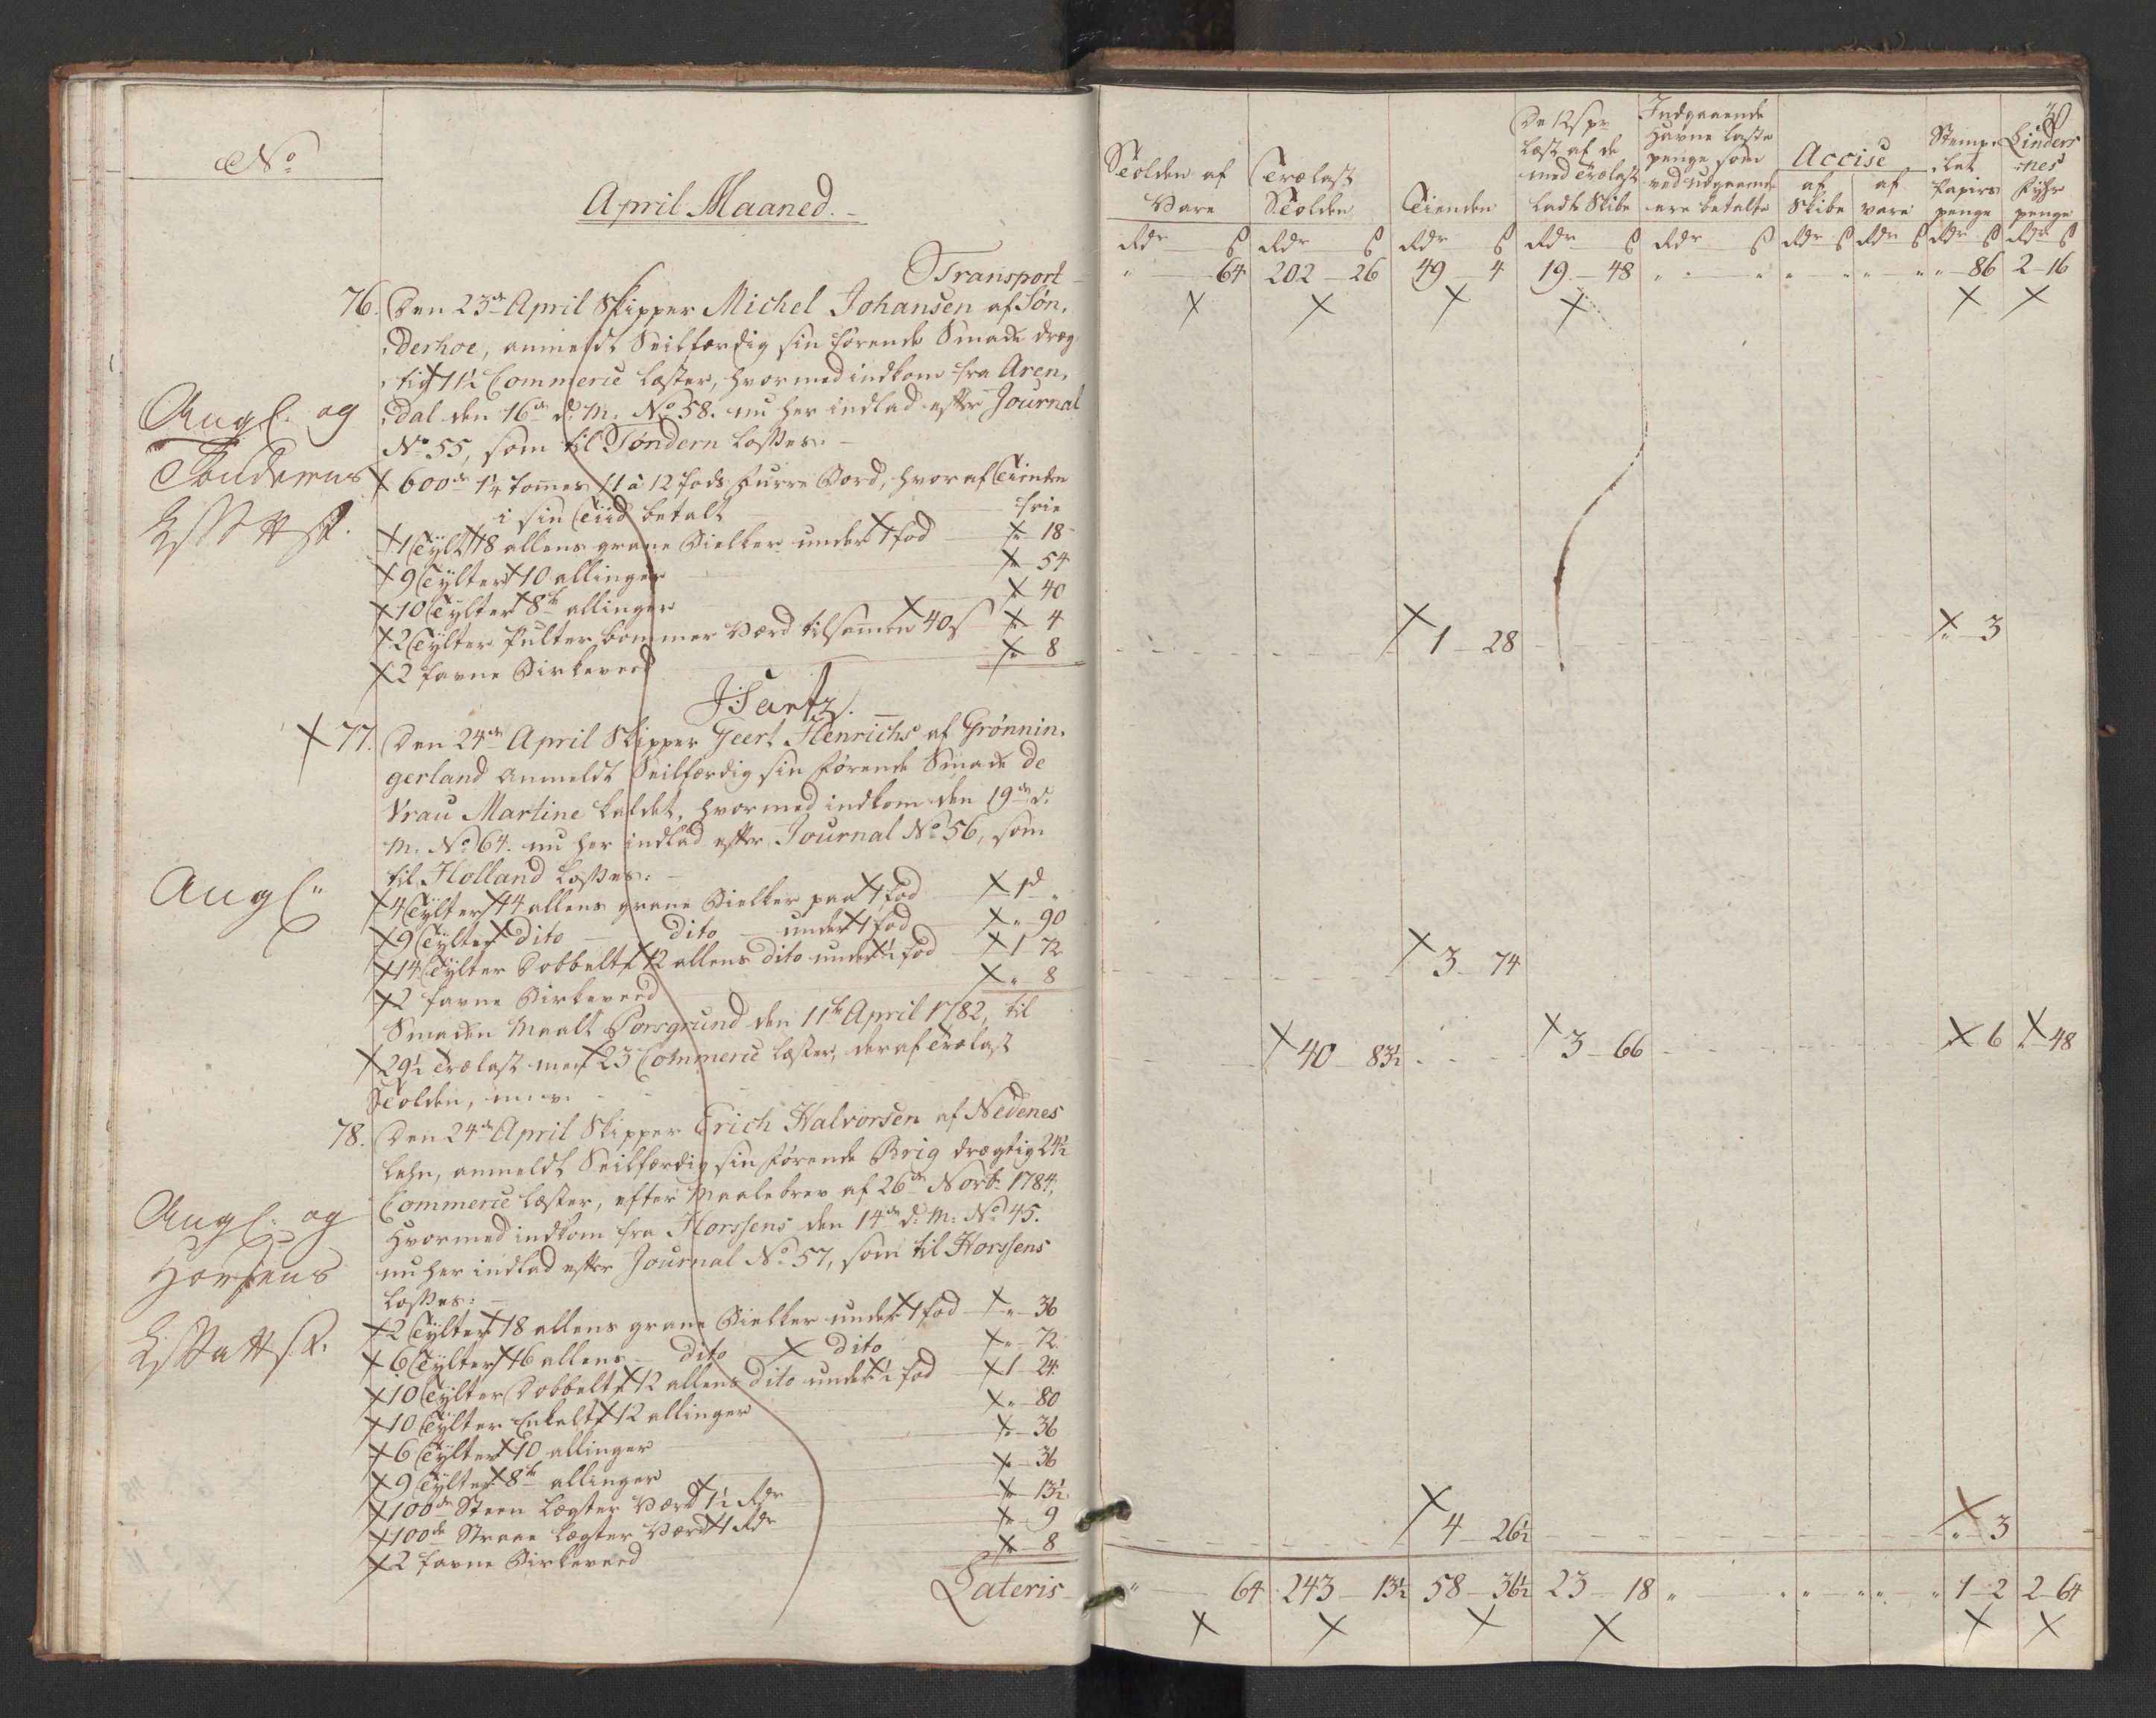 No
April Maaned.
Transport
76. Den 23de April Skipper Michel Johansen af Søn,
derhoe, anmeldt Seilfærdig sin førende Smake dræg,
tig 11½ Commerce Læster, hvormed indkom fra Aren,
dal den 16de d. M. No 58. nu her indlad efter Journal
No 55, som til Tøndern losses.
Angl. og
Tønderns
600de 1¼ tommes 11 a 12 fods furre Bord, hvoraf Tienden
i sin Tiid betalt frie
1 Tylt 18 allens grane Bielker under 1 fod " 18
9 Tylter 10 allinger " 54
10 Tylter 8te allinger " 40
2 Tylter Pulter bommer Værd tilsammen 40 s " 4
2 favne Birkeveed " 8
J. Tartz.
77. Den 24de April Skipper Geert Henrichs af Grønnin,
gerland anmeldt Seilfærdig sin førende Smake de
Vrau Martine kaldet, hvormed indkom den 19de d.
M. No 64. nu her indlad efter Journal No 56, som
til Holland losses:
Angl.
4 Tylter 14 allens grane Bielker paa 1 fod 1 d "
9 Tylter dito dito under 1 fod " 90
14 Tylter Dobbelte 12 allens dito under ½ fod 1 72
2 favne Birkeveed " 8
Smaken Maalt Porsgrund den 11te April 1782, til
29½ Trælast men 23 Commerce Læster, deraf Trælast
Tolden, m: v:
78. Den 24de April Skipper Erich Halvorsen af Nedenes
Lehn, anmeldt Seilfærdig sin førende Brig drægtig 24½
Commerce Læster, efter Maalebrev af 26de Novbr 1784,
Hvormed indkom fra Horssens den 14de d. M. No 45.
nu her indlad efter Journal No 57, som til Horssens
losses:
Angl. og
Horsens
2 Tylter 18 allens grane Bielker under 1 fod " 36
6 Tylter 16 allens dito dito " 72
10 Tylter Dobbelte 12 allens dito under ½ fod 1 24
10 Tylter Enkelte 12 allinger " 80
6 Tylter 10 allinger " 36
9 Tylter 8te allinger " 36
100de Steen Lægter Værd 1½ Rdr " 13½
100de Straae Lægter Værd 1 Rdr " 9
2 favne Birkeveed " 8
Lateris
30
Tolden af Vare
Trælast Tolden
Tienden
De 12 s pr Læst af de med Trælast ladte Skibe
Indgaaende Havne Laste penge som ved udgaaende ere betalte
Accise
af Skibe
af vare
Stemp,let Papirs penge
Linders,nes Fyhr penge
Rdr s Rdr s Rdr s Rdr s Rdr s Rdr s Rdr s Rdr s Rdr s
" 64 202 26 49 4 19 48 " " " " " " " 86 2 16
1 28 " 3
3 74
40 83½ 3 66 6 48
4 26½ " 3
" 64 243 13½ 58 36½ 23 18 " " " " " " 1 2 2 64